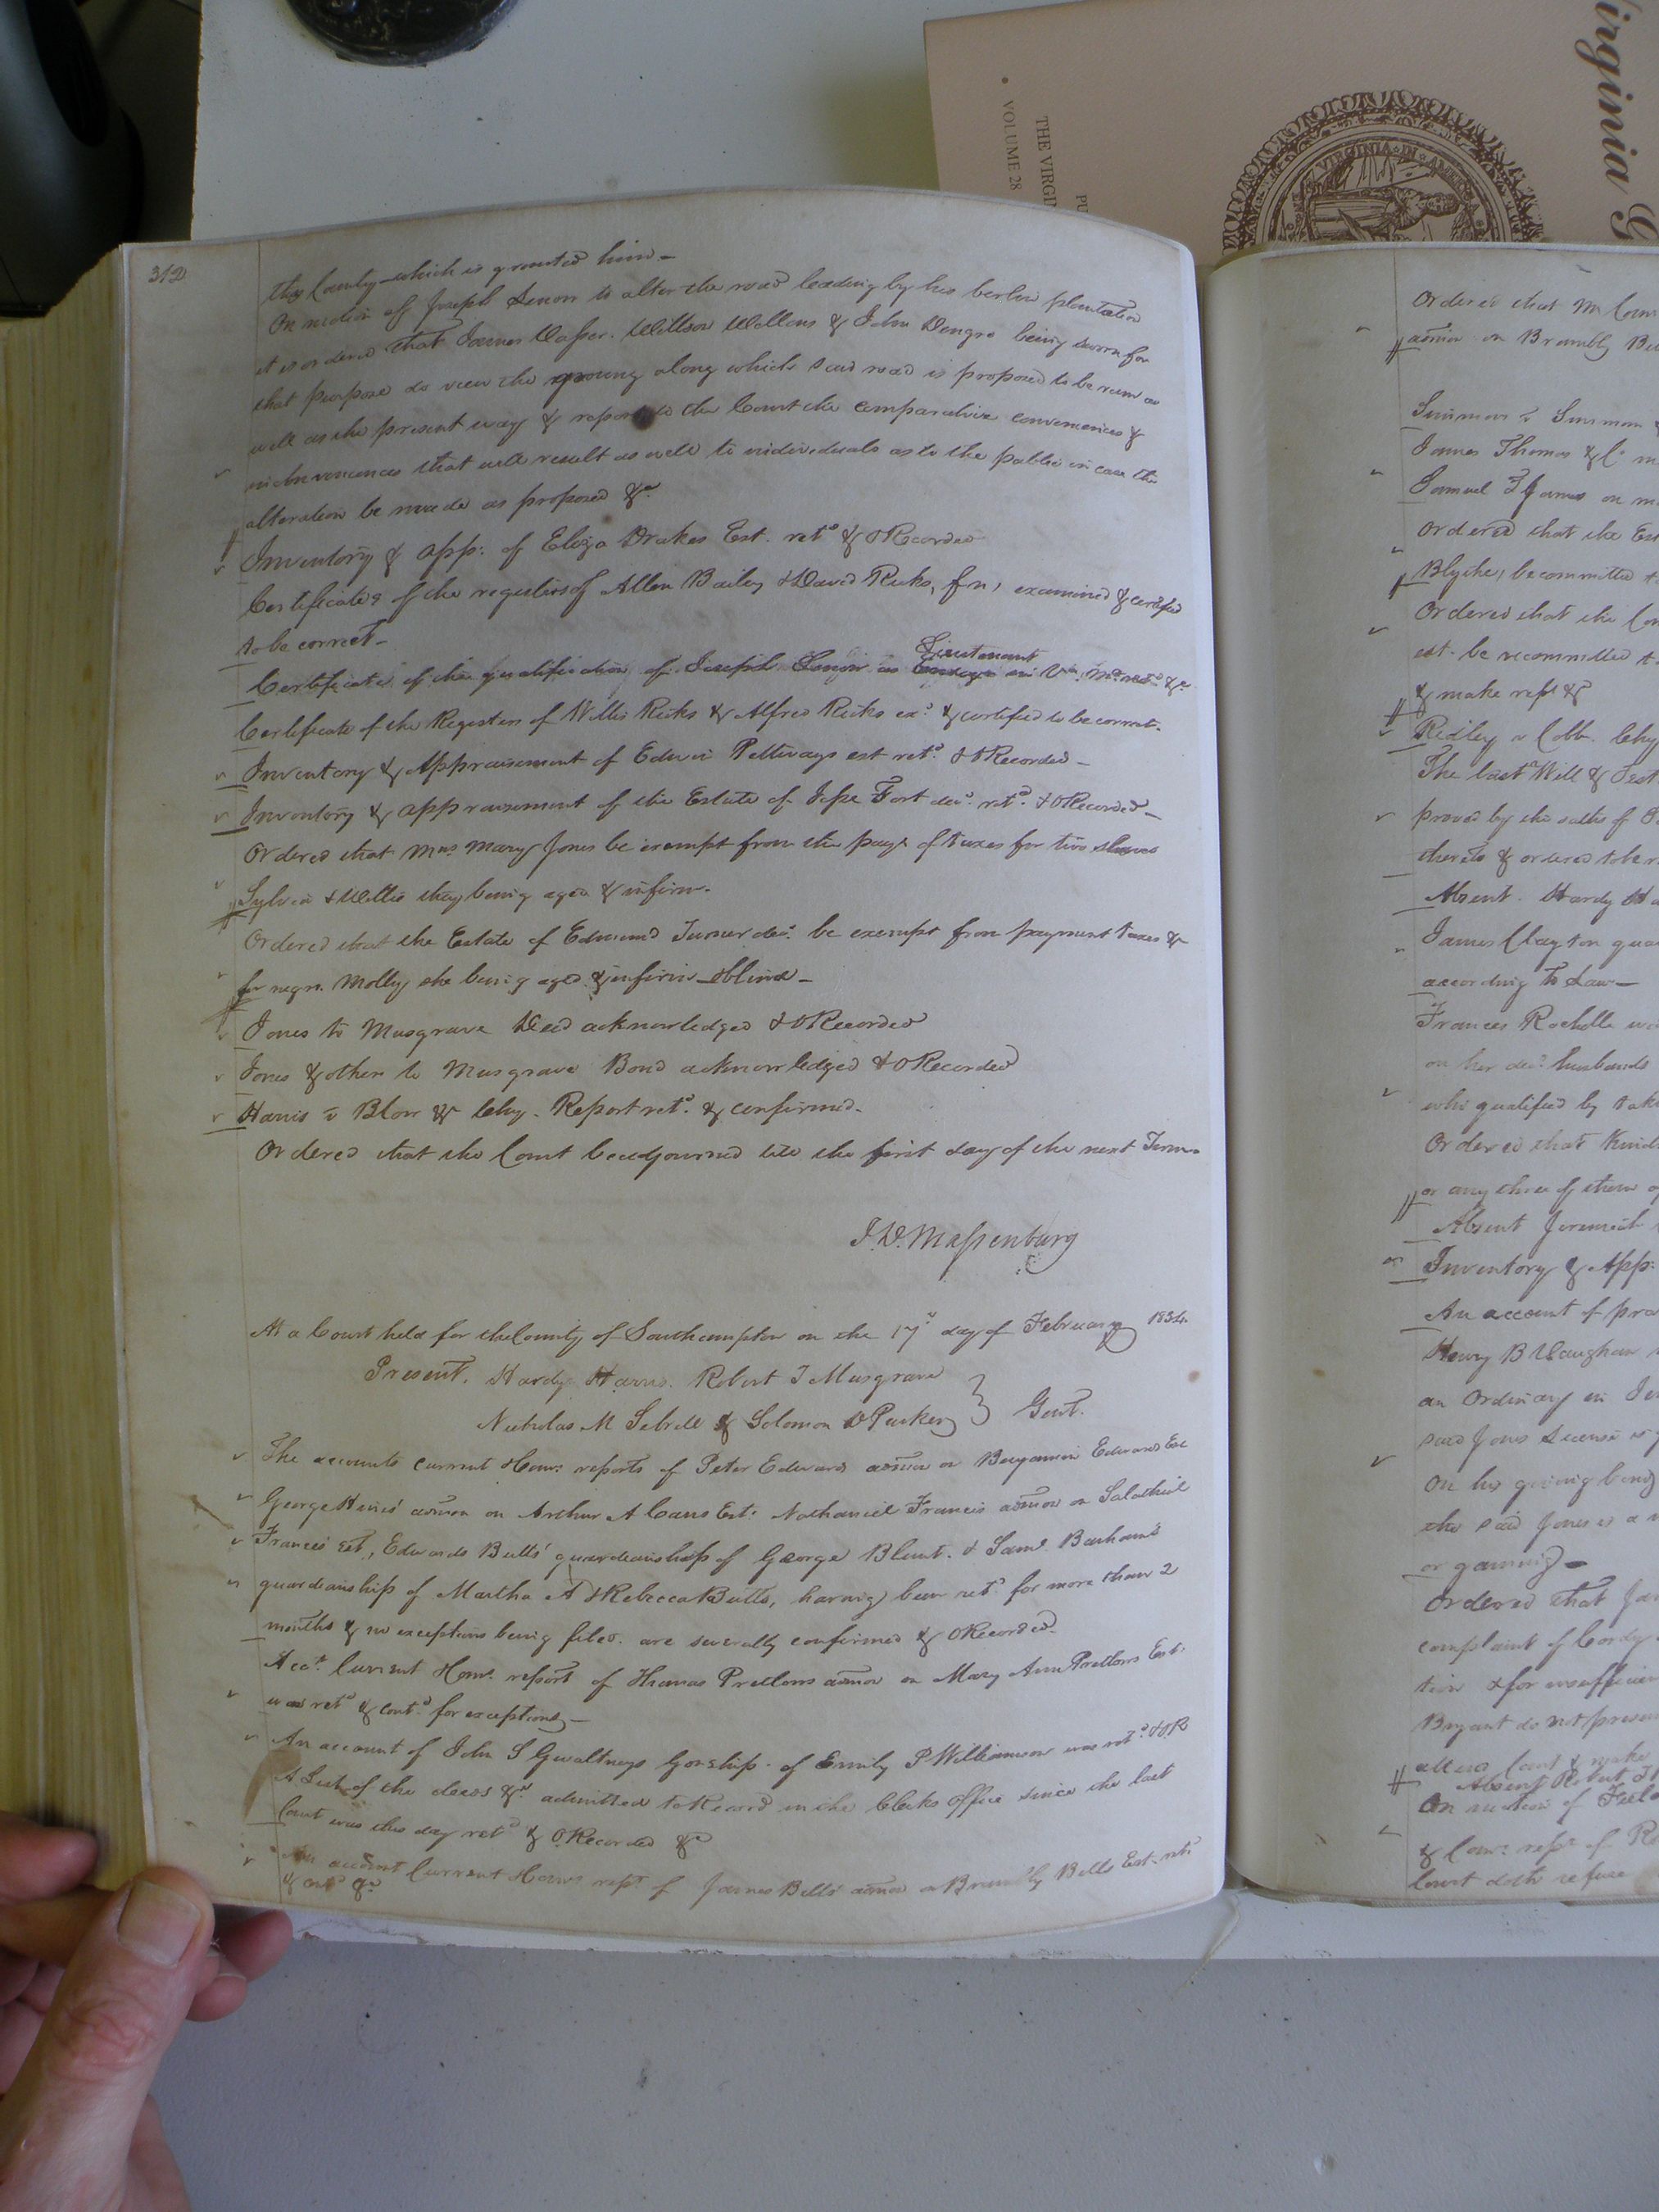 312
this County which is granted him –
On motion of Joseph Lenow to alter the road leading by his berlin plantation
it is ordered that James Vasser. Willson Wellons & John being sworn for
that purpose do view the along which said road is proposed to be run as
well as the present way & report to the Court the comparative conveniences &
inconveniences that will result as well to individuals as to the public in case the
alteration be made as proposed &c
Inventory & app: of Eliza Drakes Est. retd & ORecorded
Certificates of the registers of Allen Bailey & David Ricks, fn, examined & certified
to be correct –
Lieutenant
Certificate of the qualification of Joseph Lenow as in Va. Ma. retd &c
Certificate of the Registers of Willis Ricks & Alfred Ricks exd & certified to be correct.
Inventory & Appraisement of Edwin Pettways est retd. & ORecorded –
Inventory & appraisement of the Estate of Jesse Fort decd. retd. & ORecorded –
Ordered that Mrs Mary Jones be exempt from the payt of taxes for two slaves
Sylvia & Willis they being aged & infirm.
Ordered that the Estate of Edmund Turner decd. be exempt from payment taxes &c
for negro Molly she being aged & infirm & blind –
Jones to Musgrave Deed acknowledged & ORecorded
Jones & others to Musgrave Bond acknowledged & ORecorded
Harris v Blow &c Chy. Report retd. & confirmed.
Ordered that the Court be adjourned till the first day of the next Term
J. D. Massenburg
At a Court held for the County of Southampton on the 17th day of February 1834.
Present. Hardy Harris. Robert T Musgrave
Nicholas M Sebrell & Solomon D Parker } Gent.
The accounts current & Comr. reports of Peter Edwards admor on Benjamin Edwards Est
George Hines' admon on Arthur A Cans Est. Nathaniel Francis admon on Salathiel
Francis' est, Edwards Butts' guardianship of George Blunt. & Saml. Barham's
guardianship of Martha A & Rebecca Butts, having been retd for more than 2
months & no exceptions being filed. are severally confirmed & ORecorded.
Acct. Current & Comr. report of Thomas Pretlows admor on Mary Ann Pretlows Est.
was retd & contd. for exceptions –
An account of John S Gwaltneys Gdship. of Emily P Williamson was retd. & OR
A List of the deeds &c admitted to Record in the Clerks Office since the last
Court was this day retd & ORecorded &c
An account Current & Comrs rept. of James Bells' admor on Brumbly Bells Est. retd
& contd &c
Ordered that Mr
admor on Brambly
Simmons v Simmons
James Thomas & Co
Samuel on
Ordered that the Est
Blythe, be committed
Ordered that the
est. be recommitted
& make rept &c
Ridley v Cobb. Chy
The last Will & Test
proved by the oaths of
thereto & ordered to be
Absent. Hardy
James Clayton
according to Law –
Frances Rochelle
on her decd. husbands
who qualified by
Ordered that
or any three of them
Absent Jeremiah
Inventory & App:
An account of
Henry B Vaughan
an Ordinary in
said Jones License
on his giving bond
the said Jones is a
or gaming –
Ordered that
complaint of
tion & for insufficien
Bryant do not
Absent Robert
On motion of
& Comr. rept of
Court doth refuse
Virginia G
THE VIRGI
VOLUME 28
PU
VIRGINIA IN AMERI